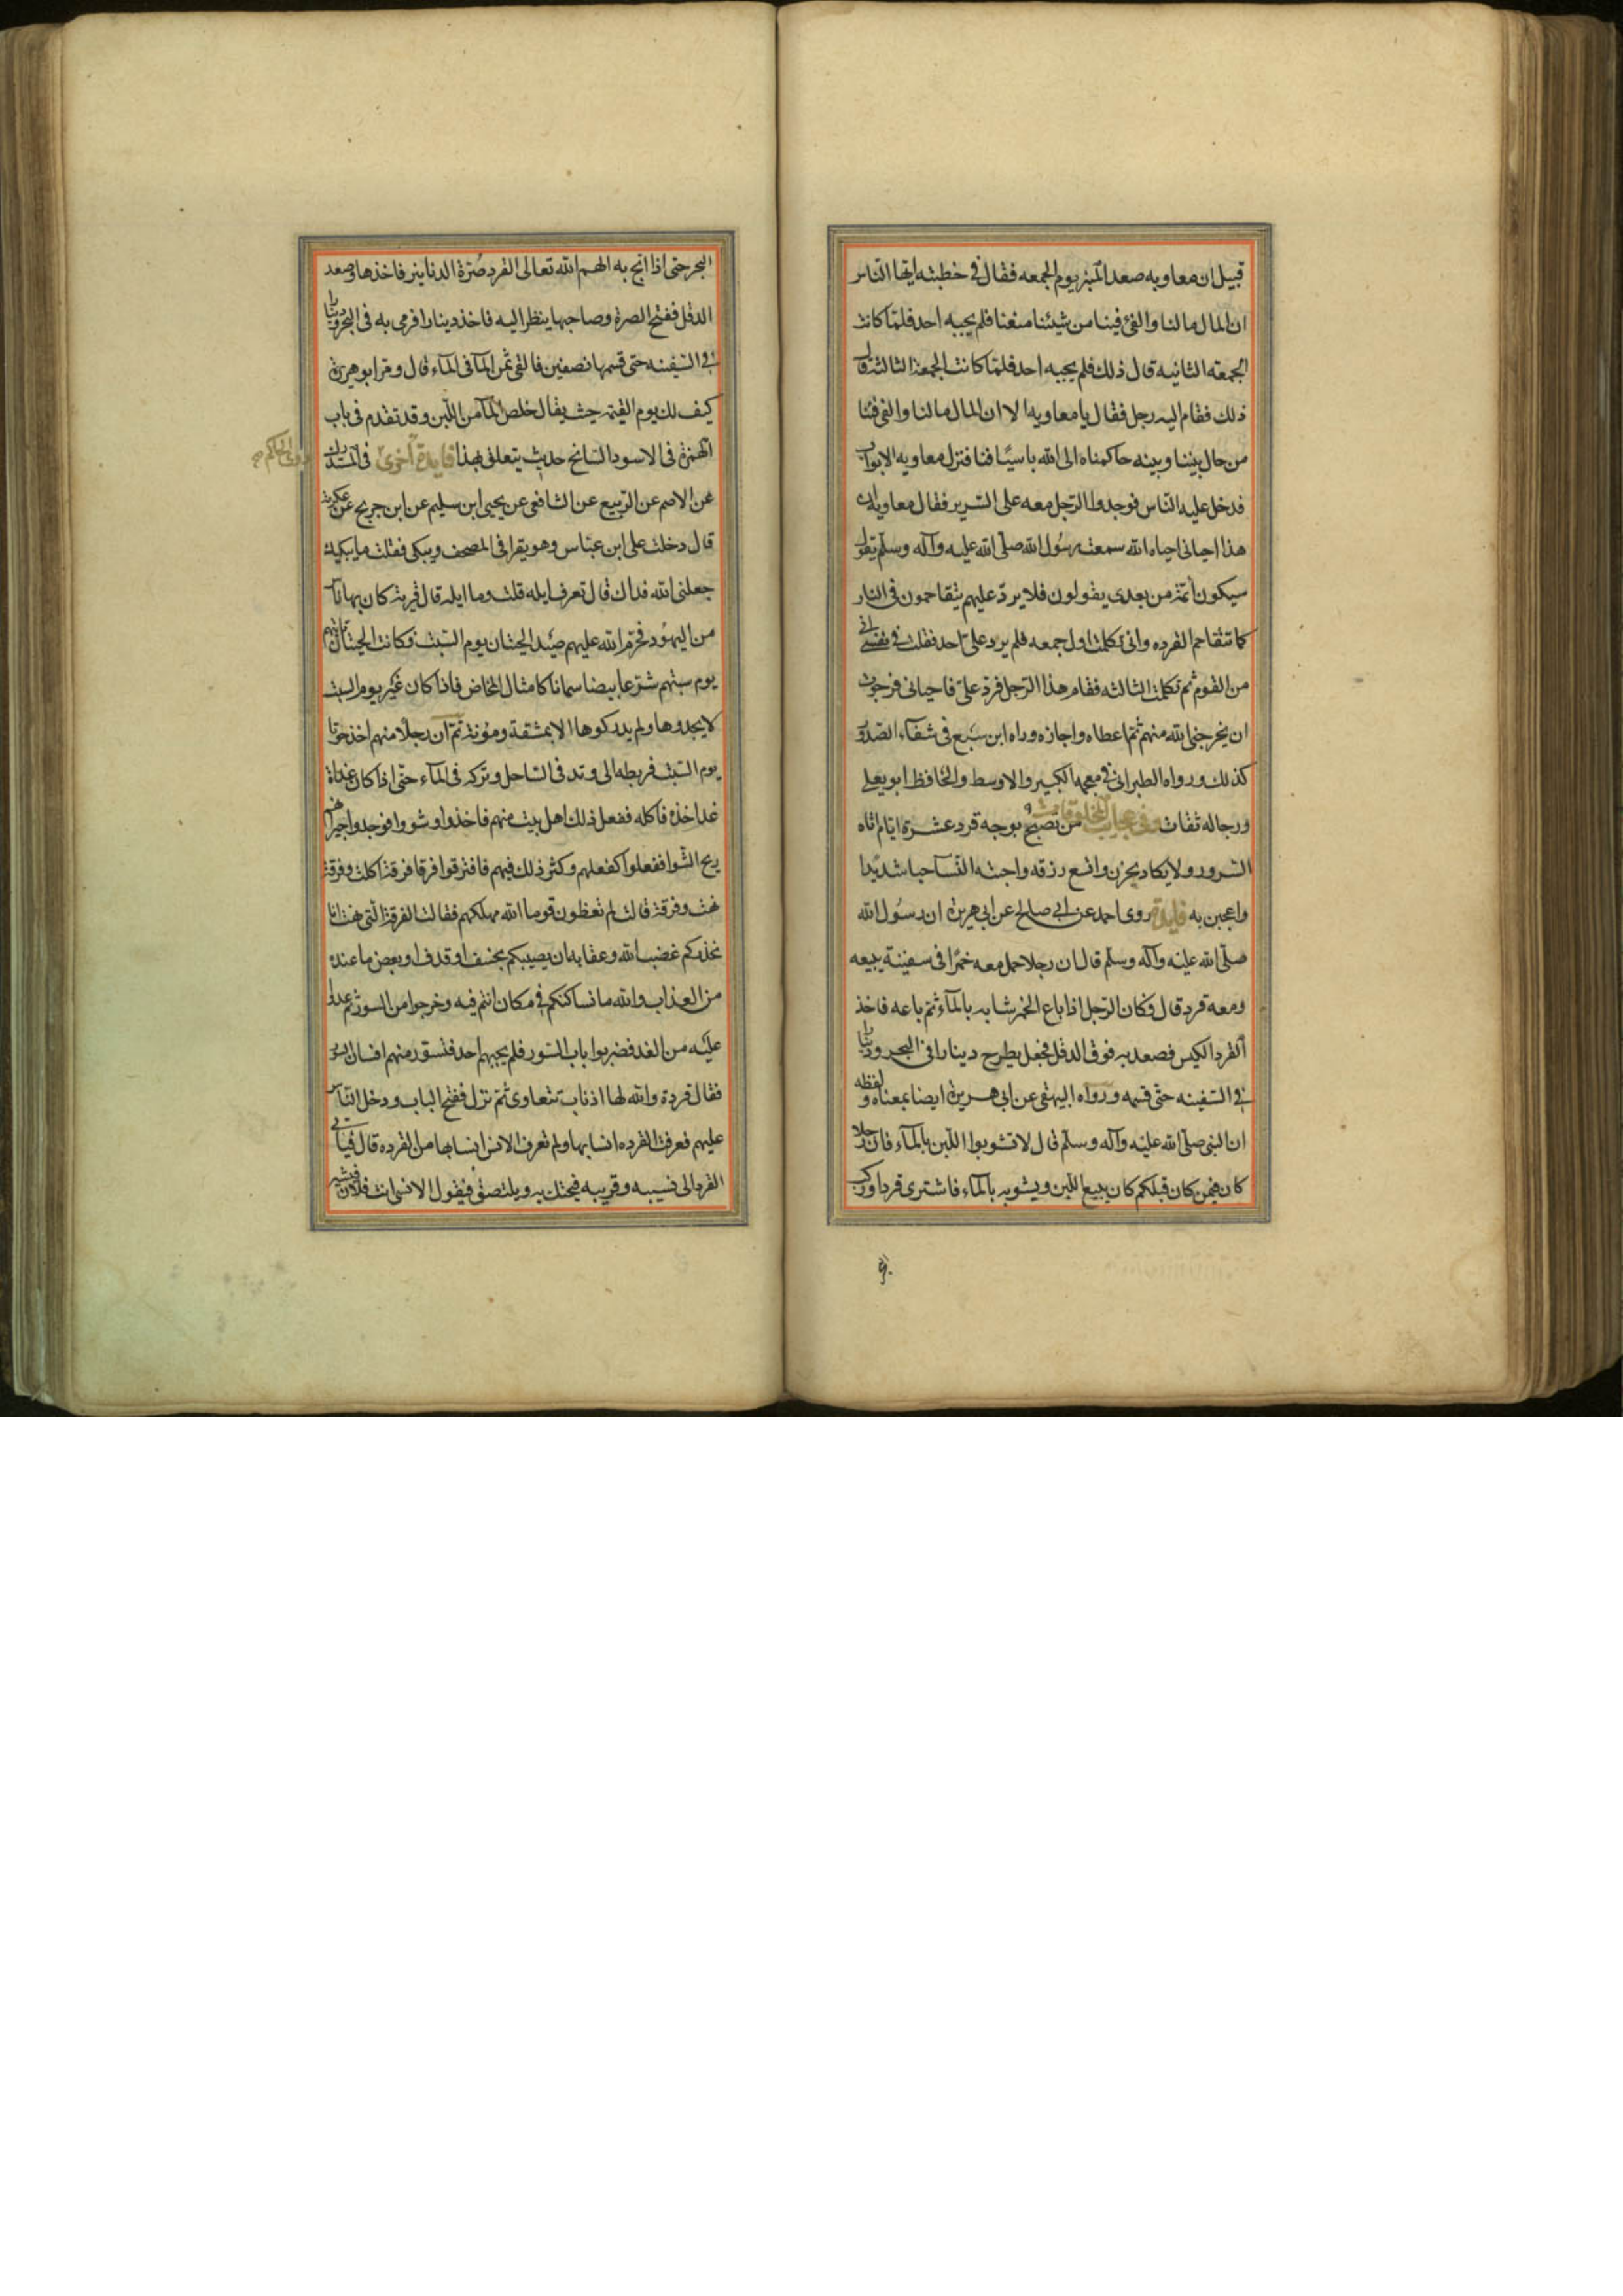 قبيل ان معاويه صعد المنبر يوم الجمعه فقال في خطبته ايها الناس
ان المال مالنا والفئ فينا من شئنا منعنا فلم يجبه احد فلما كانت
الجمعه الثانيه قال ذلك فلم يجبه احد فلما كانت الجمعة الثالثة قال
ذلك فقام اليه رجل فقال يا معاويه الا ان المال مالنا والفئ فينا
من حال بيننا وبينه حاكمناه الى الله باسيافنا فنزل معاويه الابواب
فدخل عليه الناس فوجدوا الرجل معه على السرير فقال معاويه ان
هذا احياني احياه الله سمعت رسول الله صلى الله عليه وآله وسلم يقول
سيكون أئمة من بعدى يقولون فلا يرد عليهم يتقاحمون في النار
كما تتقاحم القرده واني تكلمت اول جمعه فلم يرد علي احد فقلت في نفسي اني
من القوم ثم تكلمت الثالثه فقام هذا الرجل فرد علي فاحياني فرجوت
ان يخرجني الله منهم ثم اعطاه واجازه ورواه ابن سبع في شفاء الصدور
كذلك ورواه الطبراني في معجمه الكبير والاوسط والحافظ ابو يعلى
ورجاله ثقات وفي عجايب المخلوقات من تصبح بوجه قرد عشرة ايام اتاه
السرور ولا يكاد يحزن واتسع رزقه واحبته النسآ حبا شديدا
واعجبن به فايدة روى احمد عن ابي صالح عن ابي هريرة ان رسول الله
صلى الله عليه وآله وسلم قال ان رجلا حمل معه خمرا في سفينة يبيعه
ومعه قرد قال فكان الرجل اذا باع الخمر شابه بالمآء ثم باعه فاخذ
القرد الكيس فصعد به فوق الدقل فجعل يطرح دينارا في البحر ودينارا
في السفينه حتى قسمه ورواه البيهقي عن ابي هريرة ايضا بمعناه ولفظه
ان النبي صلى الله عليه وآله وسلم قال لا تشوبوا اللبن بالمآء فان رجلا
كان فيمن كان قبلكم كان يبيع اللبن ويشوبه بالمآء فاشترى قردا وركب
البحر حتى اذا لجج به الهم الله تعالى القرد صرة الدنانير فاخذها وصعد
الدقل ففتح الصرة وصاحبها ينظر اليه فاخذ دينارا فرمى به في البحر ودينارا
في السفينه حتى قسمها نصفين فالقى ثمن المآ في المآء قال ومر ابو هريرة
كيف لك يوم القيمة حيث يقال خلص المآ من اللبن وقد تقدم في باب
الهمزة في الاسود السانح حديث يتعلق بهذا فايدة اخرى في المستدرك
عن الاصم عن الربيع عن الشافعي عن يحيى ابن سليم عن ابن جريج عن عكرمة
قال دخلت على ابن عباس وهو يقرا في المصحف ويبكي فقلت ما يبكيك
جعلني الله فداك قال تعرف ايله قلت وما ايله قال قرية كان بها ناس
من اليهود فحرم الله عليهم صيد الحيتان يوم السبت فكانت الحيتان تأتيهم
يوم سبتهم شرعا بيضا سمانا كامثال المخاض فاذا كان غير يوم السبت
لا يجدوها ولم يدركوها الا بمشقة ومؤنة ثم ان رجلا منهم اخذ حوتا
يوم السبت فربطه الى وتد في الساحل وتركه في المآء حتى اذا كان غداة
غد اخذه فاكله ففعل ذلك اهل بيت منهم فاخذوا وشووا فوجد جيرانهم
ريح الشوا ففعلوا كفعلهم وكثر ذلك فيهم فافترقوا فرقا فرقة اكلت وفرقة
نهت وفرقة قالت لم تعظون قوما الله مهلكهم فقالت الفرقة التي نهت انا
نحذركم غضب الله وعقابه ان يصيبكم بخسف او قذف او ببعض ما عنده
من العذاب والله ما نساكنكم في مكان انتم فيه وخرجوا من السور ثم غدوا
عليه من الغد فضربوا باب السور فلم يجبهم احد فتسور منهم انسان السور
فقال قردة والله لها اذناب تتعاوى ثم نزل ففتح الباب ودخل الناس
عليهم فعرفت القرده انسابها ولم تعرف الانس انسابها من القرده قال فياتي
القرد الى نسيبه وقريبه فيحتك به ويلتصق فيقول الانسي انت فلان فيشير